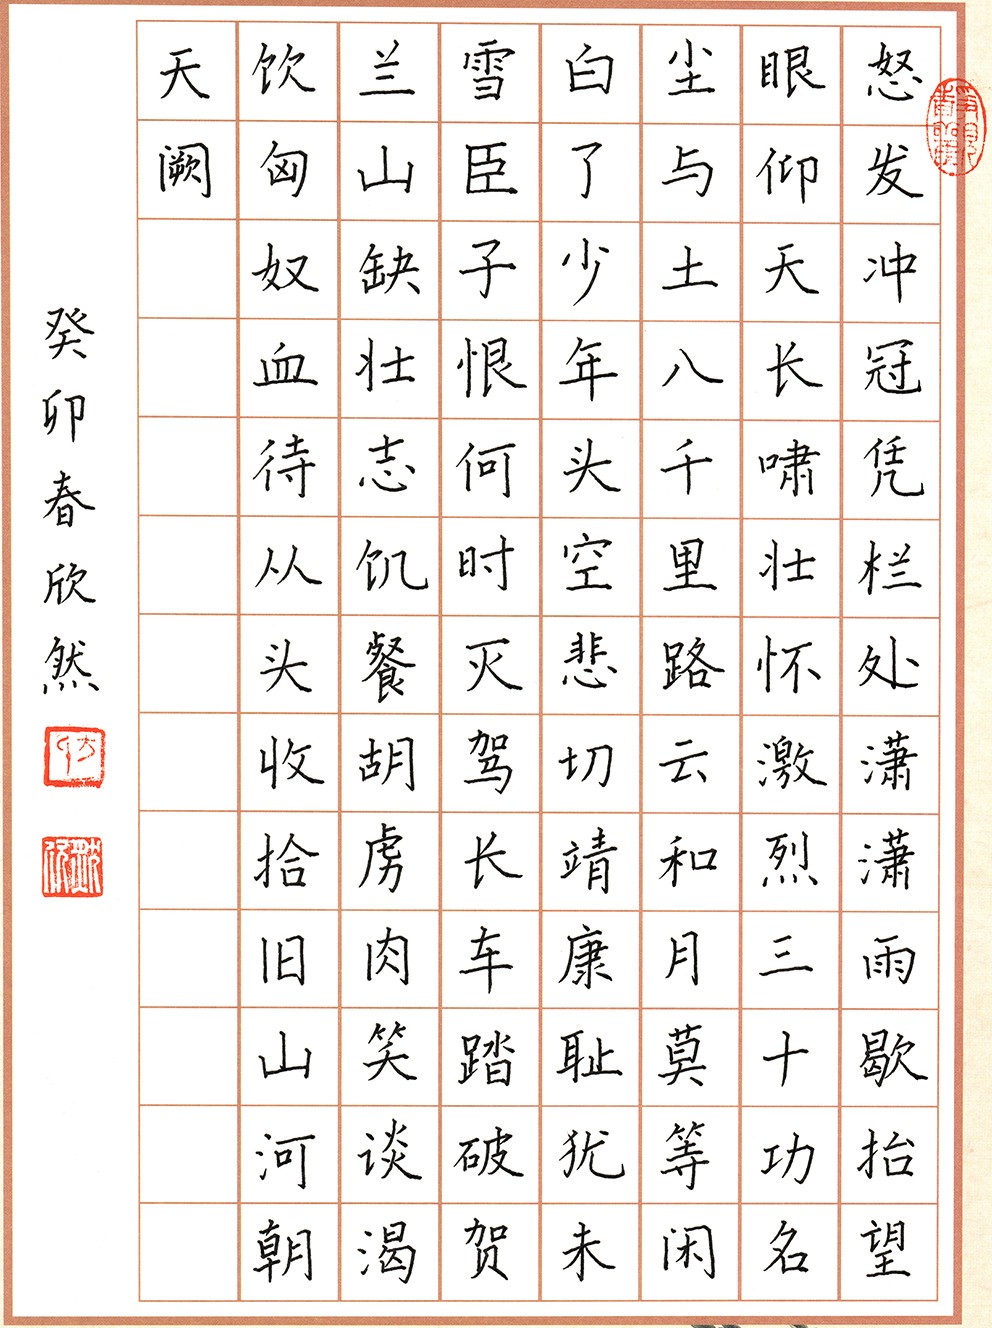 怒发冲冠凭栏处潇潇雨歇抬望
眼仰天长啸壮怀激烈三十功名
尘与土八千里路云和月莫等闲
白了少年头空悲切靖康耻犹未
雪臣子恨何时灭驾长车踏破贺
兰山缺壮志饥餐胡虏肉笑谈渴
饮匈奴血待从头收拾旧山河朝
天阙
癸卯春欣然